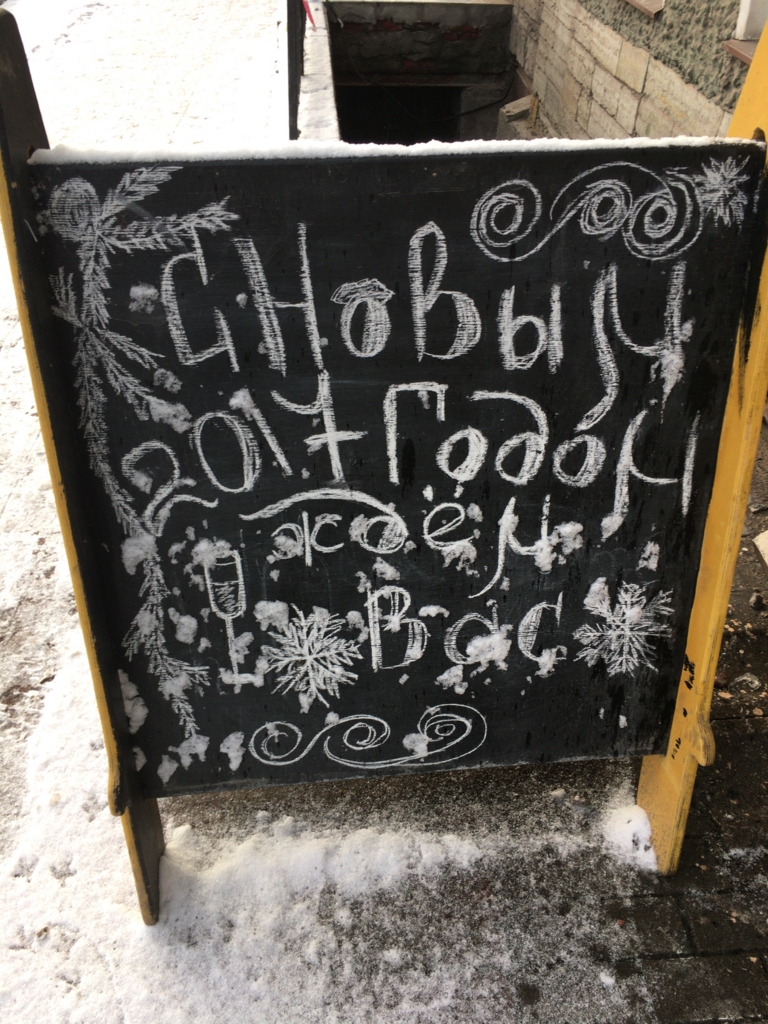 С Новым
2017 Годом
ждём
Вас